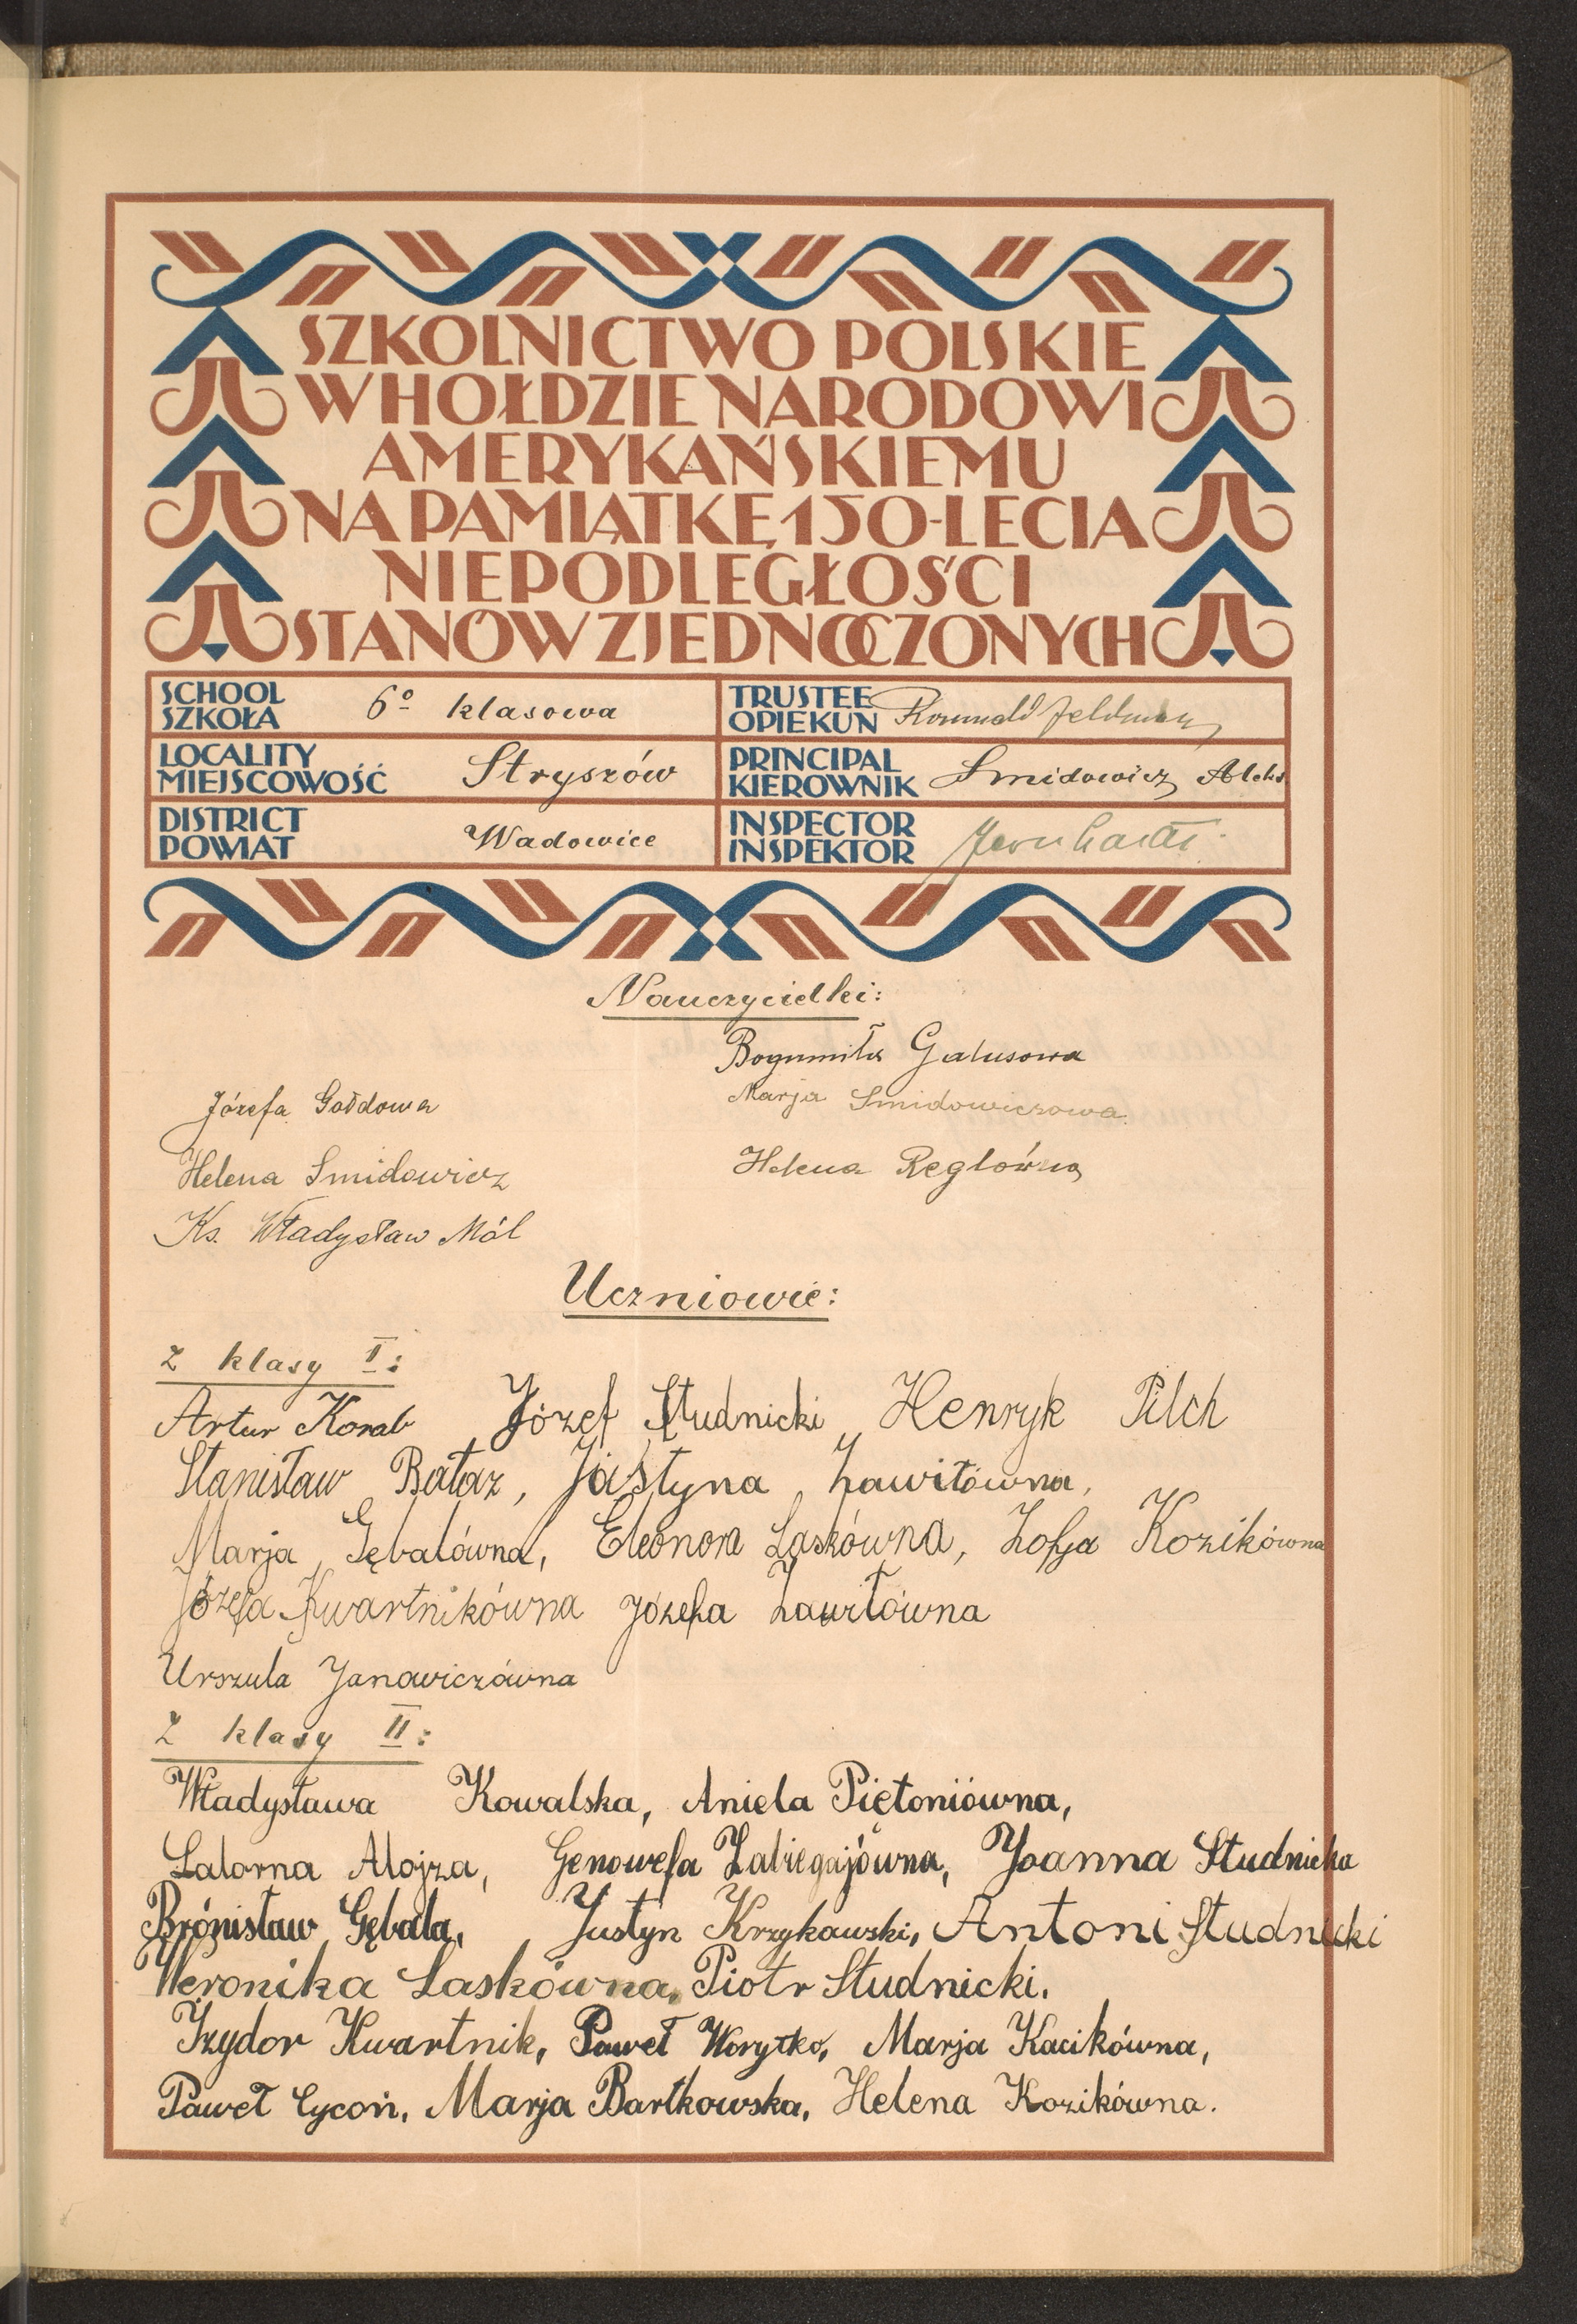 SZKOLNICTWO POLSKIE
W HOŁDZIE NARODOWI
AMERYKAŃSKIEMU
NA PAMIĄTKĘ 150-LECIA
NIEPODLEGŁOŚCI
STANÓW ZJEDNOCZONYCH
SCHOOL
SZKOŁA 6º klasowa
TRUSTEE
OPIEKUN Romuald
LOCALITY
MIEJSCOWOŚĆ Stryszów
PRINCIPAL
KIEROWNIK Smidowicz Aleks
DISTRICT
POWIAT Wadowice
INSPECTOR
INSPEKTOR
Nauczycielki:
Bogumiła Galusowa
Józefa Gołdowa
Marja Smidowiczowa
Helena Smidowicz
Helena Reglówna
Ks. Władysław Mól
Uczniowie:
z klasy I:
Artur Korab Józef Studnicki Henryk Pilch
Stanisław Bałaz, Justyna Zawiłówna,
Marja Gębalówna, Eleonora Laskówna, Zofja Kozikówna
Józefa Kwartnikówna Józefa Zawiłówna
Urszula Janowiczówna
Z klasy II:
Władysława Kowalska, Aniela Piętoniówna,
Salorna Alojza, Genowefa Zabiegajówna, Joanna Studnicka
Brónisław Gębala, Justyn Krzykawski, Antoni Studnicki
Weronika Laskówna, Piotr Studnicki.
Izydor Kwartnik, Paweł Worytko, Marja Kacikówna,
Paweł Cycoń, Marja Bartkowska, Helena Kozikówna.